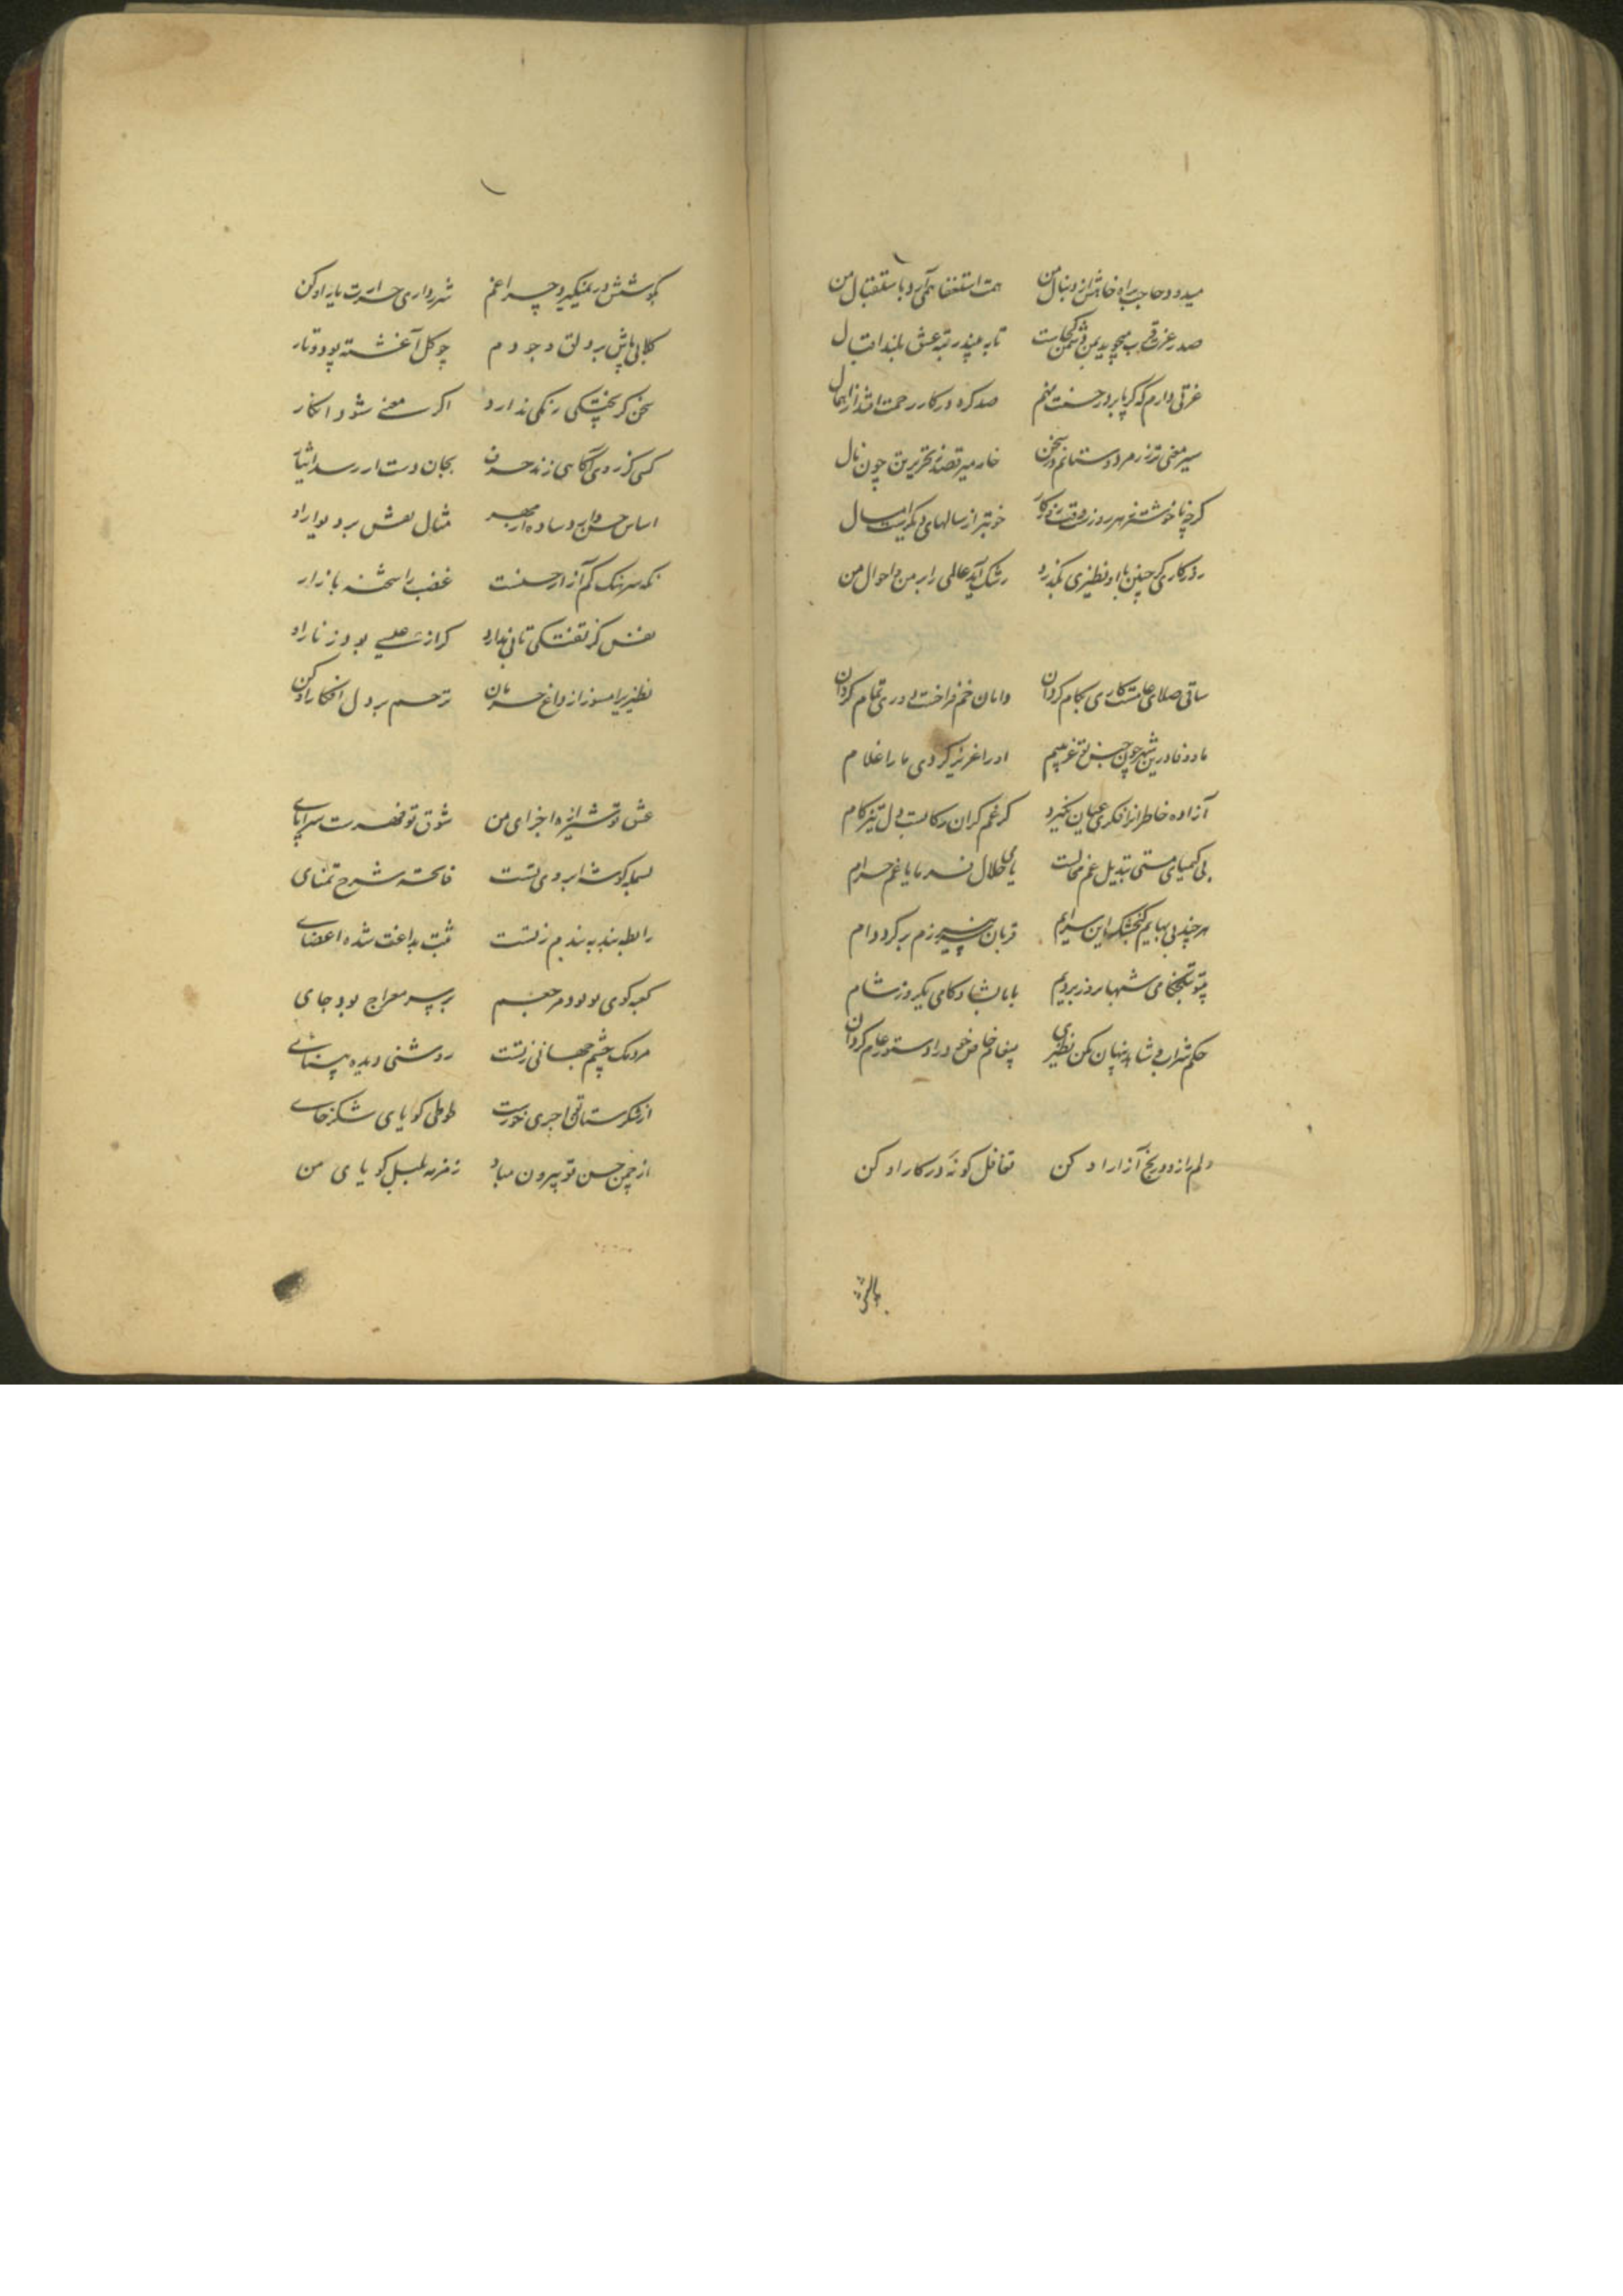 میدود حاجب براه خواهش از دنبال من همت استغفا همی آرد باستقبال من
صدر عزت قرب میجوید بمن دشمن کجاست تا به بیند رتبه عشق بلند اقبال
عزتی دارم که گر پا بر در جنت نهم صد گره در کار رحمت افتد از اهمال
سیر معنی تر زمرد دوستانم در سخن خامه میرقصد ز تحریر
گرچه با خوشتر ز هر روزست وقت روزگار خوبتر از سالهای دیگرست امسال
روزگاری گر چنین با او نظیری بگذرد رشک آید عالمی را بر من و احوال من
ساقی صلای عامست کاری بکام گردان دامان خم فراخست دوری تمام گردان
ما و وفا درین شهر چون حسن تو غریبیم او را عزیز کردی ما را غلام
آزاده خاطرانرا فکر عیان نگیرد گر غم گران رکابست دل تیز گام
بی کیمیای مستی تبدیل غم محالست یا می حلال فرما یا غم حرام
هر چند بی بهایم گنجشک این سرایم قربان سر نیرزم بر گرد دام
بیتو بتلخکامی شبها بروز بردیم با ما بشادکامی یکروز شام
حکم شراب و شاهد پنهان مکن نظیری پیغام خاص خود را دستور عام گردان
دلم را ز درد و رنج آزاد کن تغافل گونه در کار او کن
بکوشش در نمیگیرد چراغم شرر داری حرارت یار او کن
گلابی پاش بر دلق وجودم چو گل آغشته پود و تار
سخن گر پختگی رنگی ندارد اگر معنی شود انکار
کسی گر دم ز آگاهی زند حرف بجان دست ار رسد ایثار
اساس حسن دارد ساده از مهر مثال نقش بر دیوار او
نگه سرهنگ کم آزار حسنست غضب را شحنه بازار
نفس گر تفتگی تابی ندارد گر از عیسی بود ز نار او
نظیری را مسوز از داغ حرمان ترحم بر دل افگار او کن
عشق تو شیرازه اجزای من شوق تو فهرست سراپای
بسمله گوشه ابروی تست فاتحه شرح تمنای
رابطه بند به بندم ز تست ثبت بداغت شده اعضای
کعبه کوی تو بود مرجعم بر سر معراج بود جای
مردمک چشم جهانی ز تست روشنی دیده بینای
از شکرستان تو اجری خورست طوطی گویای شکرخای
از چمن حسن تو بیرون مباد زمزمه بلبل گویای من